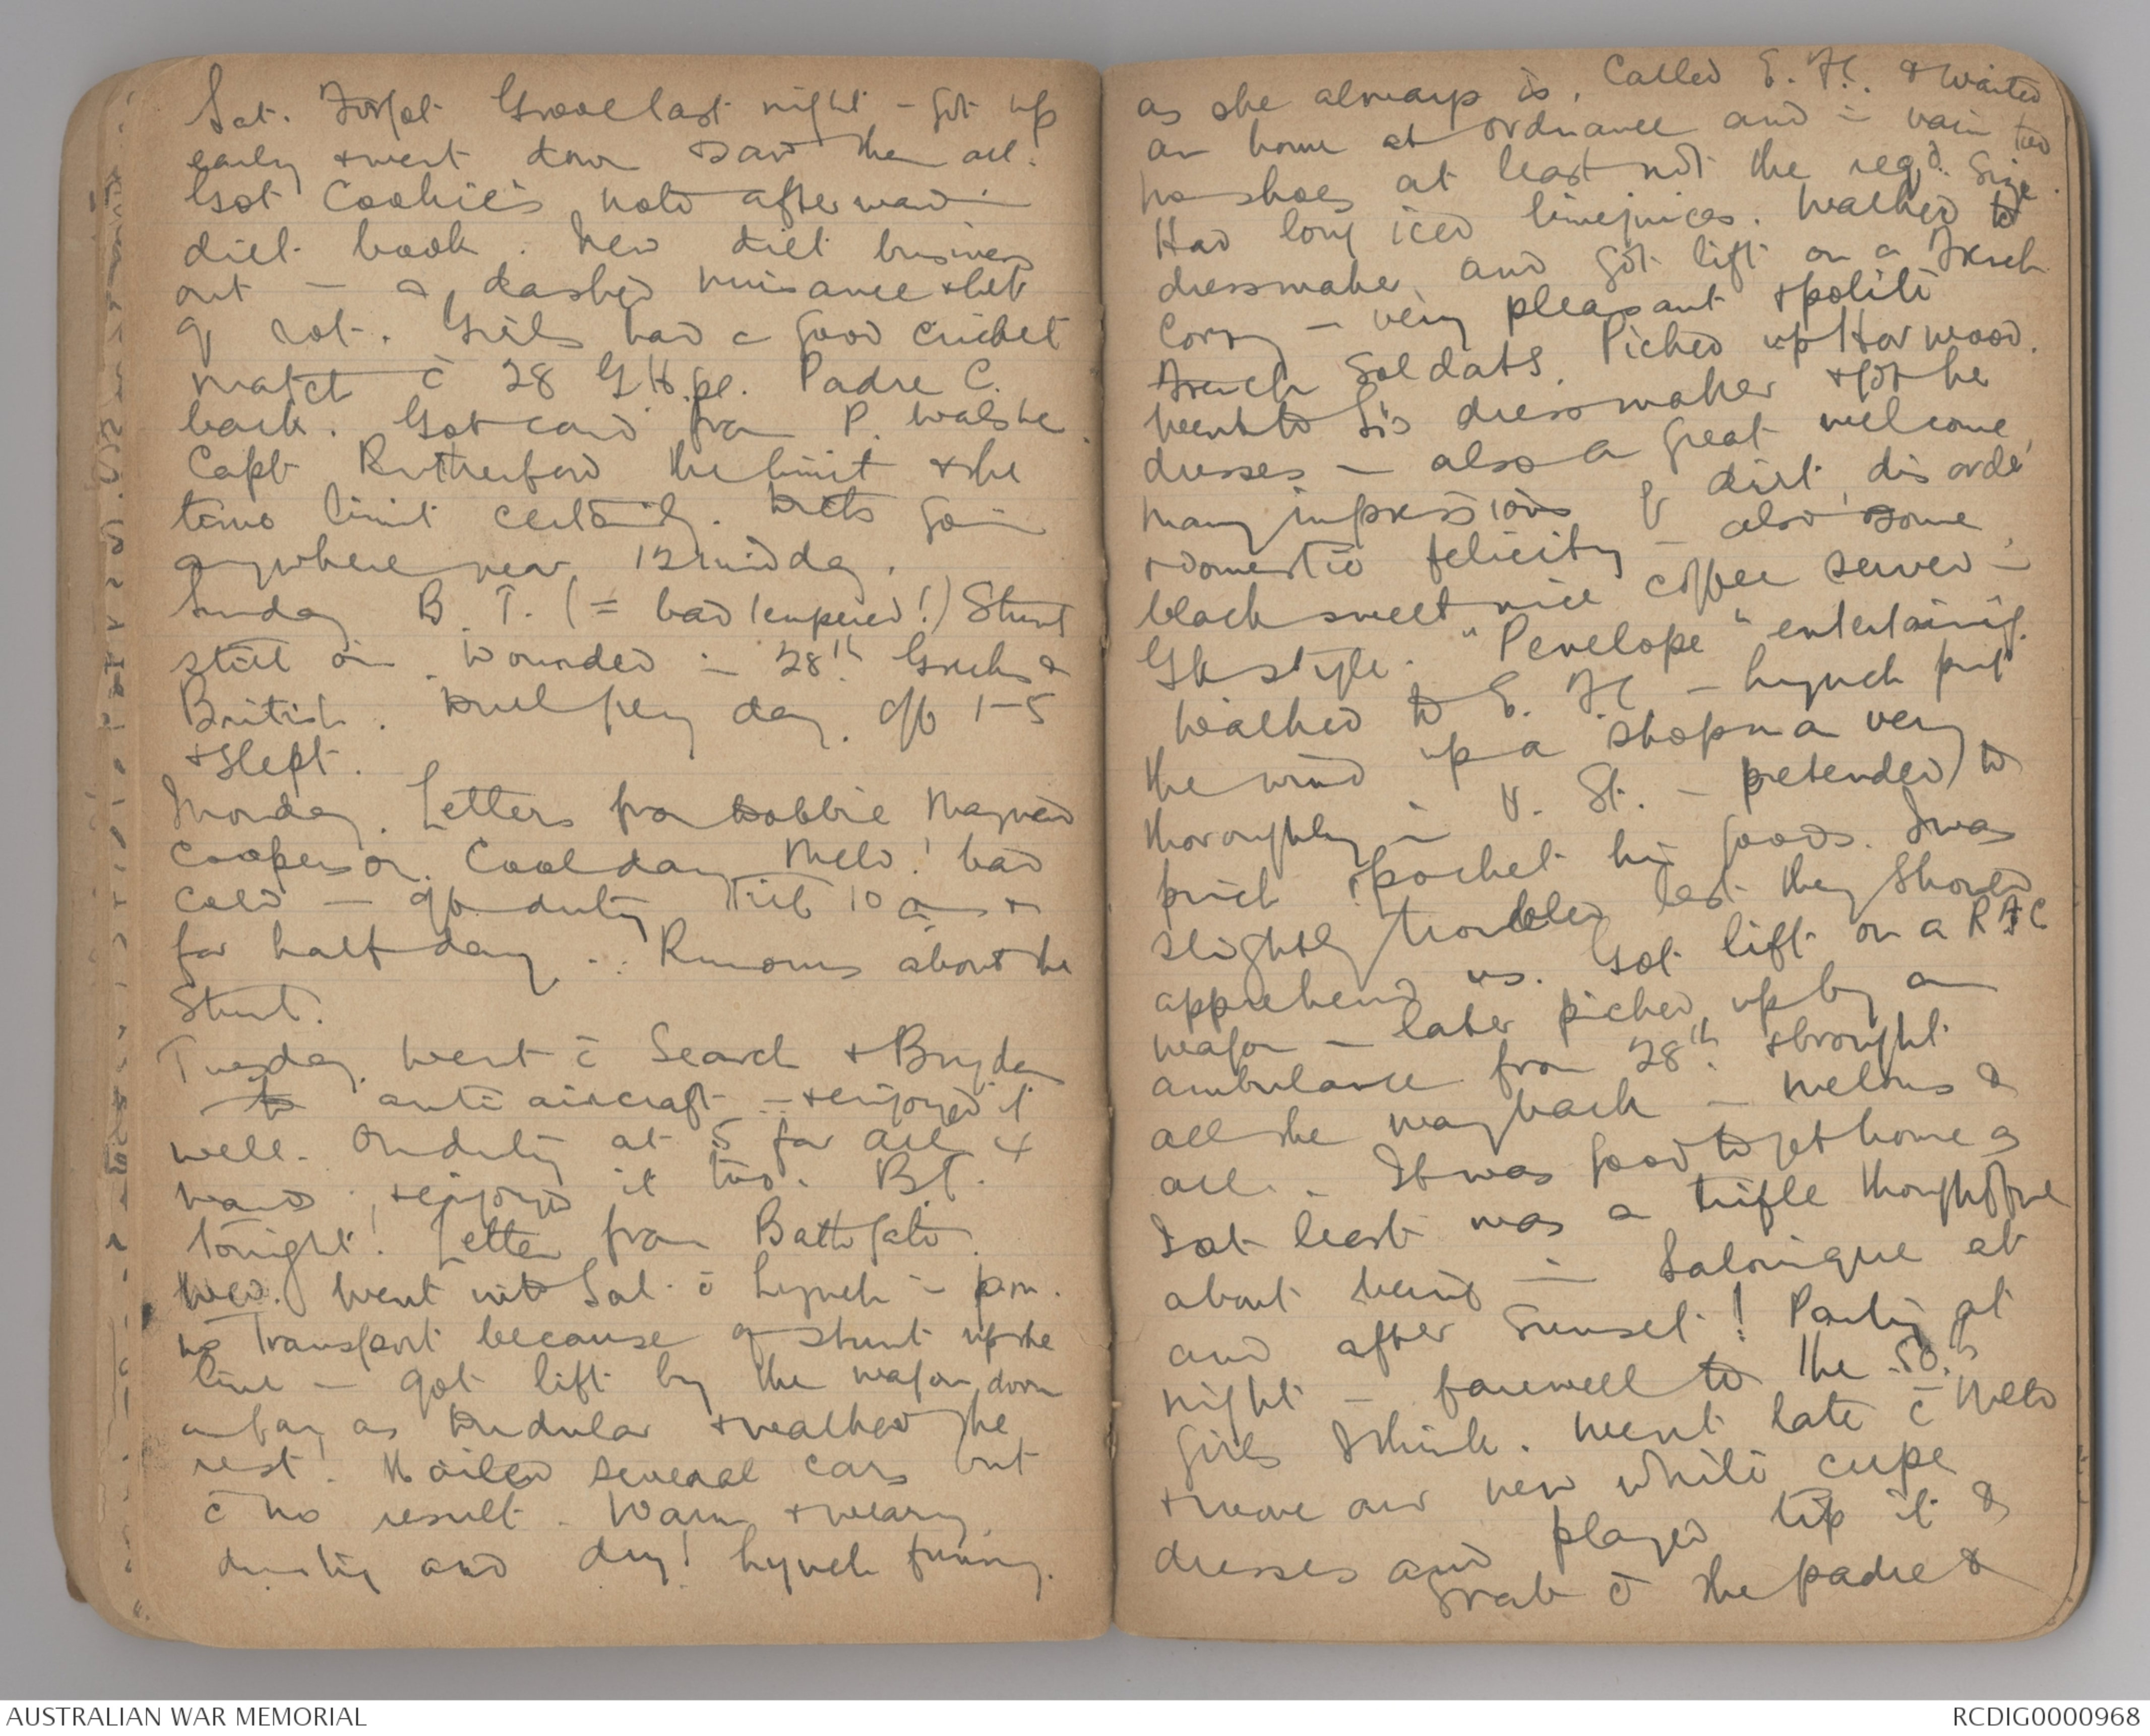 Sat. Forgot last night – got up
early & went down & saw them all.
Got Cookie's note afterward in
diet book. New diet business
out – a dashed nuisance & lot
of rot. Girls had a good cricket
match c̄ 28 G Hpl. Padre C.
back. Got card from P. Walshe.
Capt Rutherford the limit & the
limit certainly. Diets going
anywhere near 12 midday.
Sunday B. T. (= bad tempered!) Stunt
still on. Wounded in 28th Greeks &
British. day. off 1–5
& slept.
Monday. Letters from Bobbie Maynard
Cooperson. Cool day. Mew! bad
cold – off duty till 10 am &
for half day. Rumours about the
Stunt.
Tuesday. Went c̄ Search & Bryden
to anti aircraft – & enjoyed it
well. On duty at 5 for all 4
wards, & enjoyed it too. B.T.
tonight! Letter from
Wed. Went into Sal. c̄ Lynch in p.m.
no Transport because of stunt up the
line – got lift by the wagon down
as far as Dudular & walked the
rest! Hailed several cars but
c̄ no result. Warm & weary
dusty and dry! Lynch funny.
as she always is. Called E. H. & waited
an hour at ordnance and in vain
no shoes at least not the reqd. size.
Had long iced limejuices. Walked to
dressmaker and got lift on a French
lorry – very pleasant & polite
French Soldats. Picked up Harwood.
Went to dressmaker & got the
dresses – also a great welcome,
many impressions of dirt, disorder
& domestic felicity – also some
black sweet nice coffee served in
Gk style. "Penelope" entertaining.
Walked to E. H – Lynch put
the wind up a shopman very
thoroughly in V. St. – pretended to
prick & pocket his goods. I was
slightly troubled lest they should
apprehend us. Got lift on a RAC
wagon – later picked up by an
ambulance from 28th & brought
all the way back – melons &
all. It was good to get home as
I at least was a trifle thoughtful
about being in Salonique at
and after Sunset! Party at
night – farewell to the 50th
girls I think. Went late c̄ Mew
& wore our new white crepe
dresses and played tip it &
Grab c̄ the padre &
AUSTRALIAN WAR MEMORIAL
RCDIG0000968